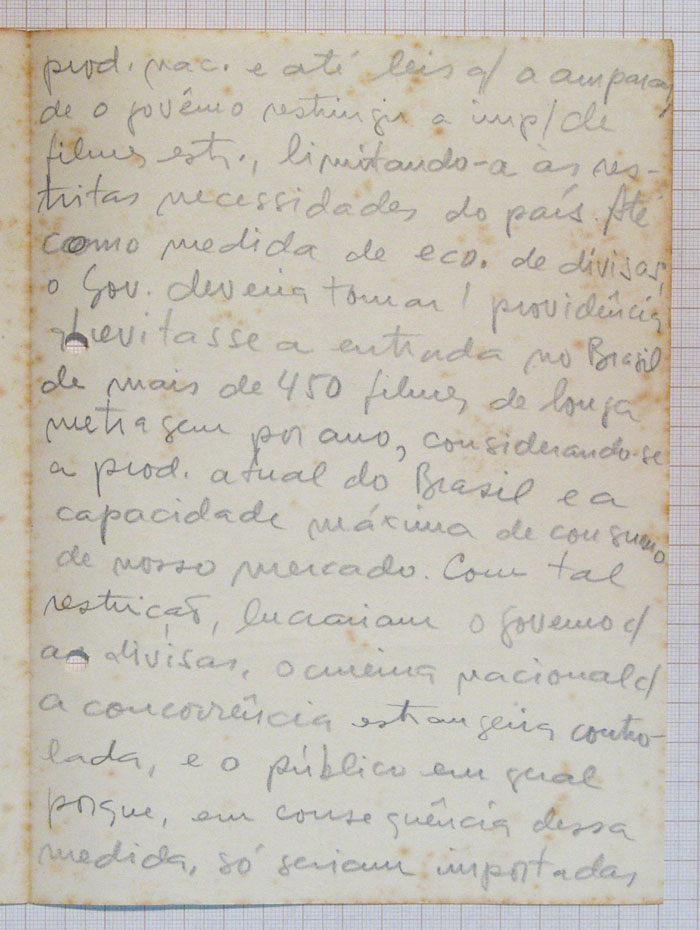 prod. nac. e até leis q/ a amparas/
de o govêrno restringir a imp/ de
filmes estr., limitando-a às res-
tritas necessidades do país. Até
como medida de eco. de divisas,
o Gov. deveria tomar 1 providência
q/ evitasse a entrada no Brasil
de mais de 450 filmes de longa
metragem por ano, considerando-se
a prod. atual do Brasil e a
capacidade máxima de consumo
de nosso mercado. Com tal
restrição, lucrariam o governo c/
as divisas, o cinema nacional c/
a concorrência estrangeira contro-
lada, e o público em geral
porque, em consequência dessa
medida, só seriam importadas